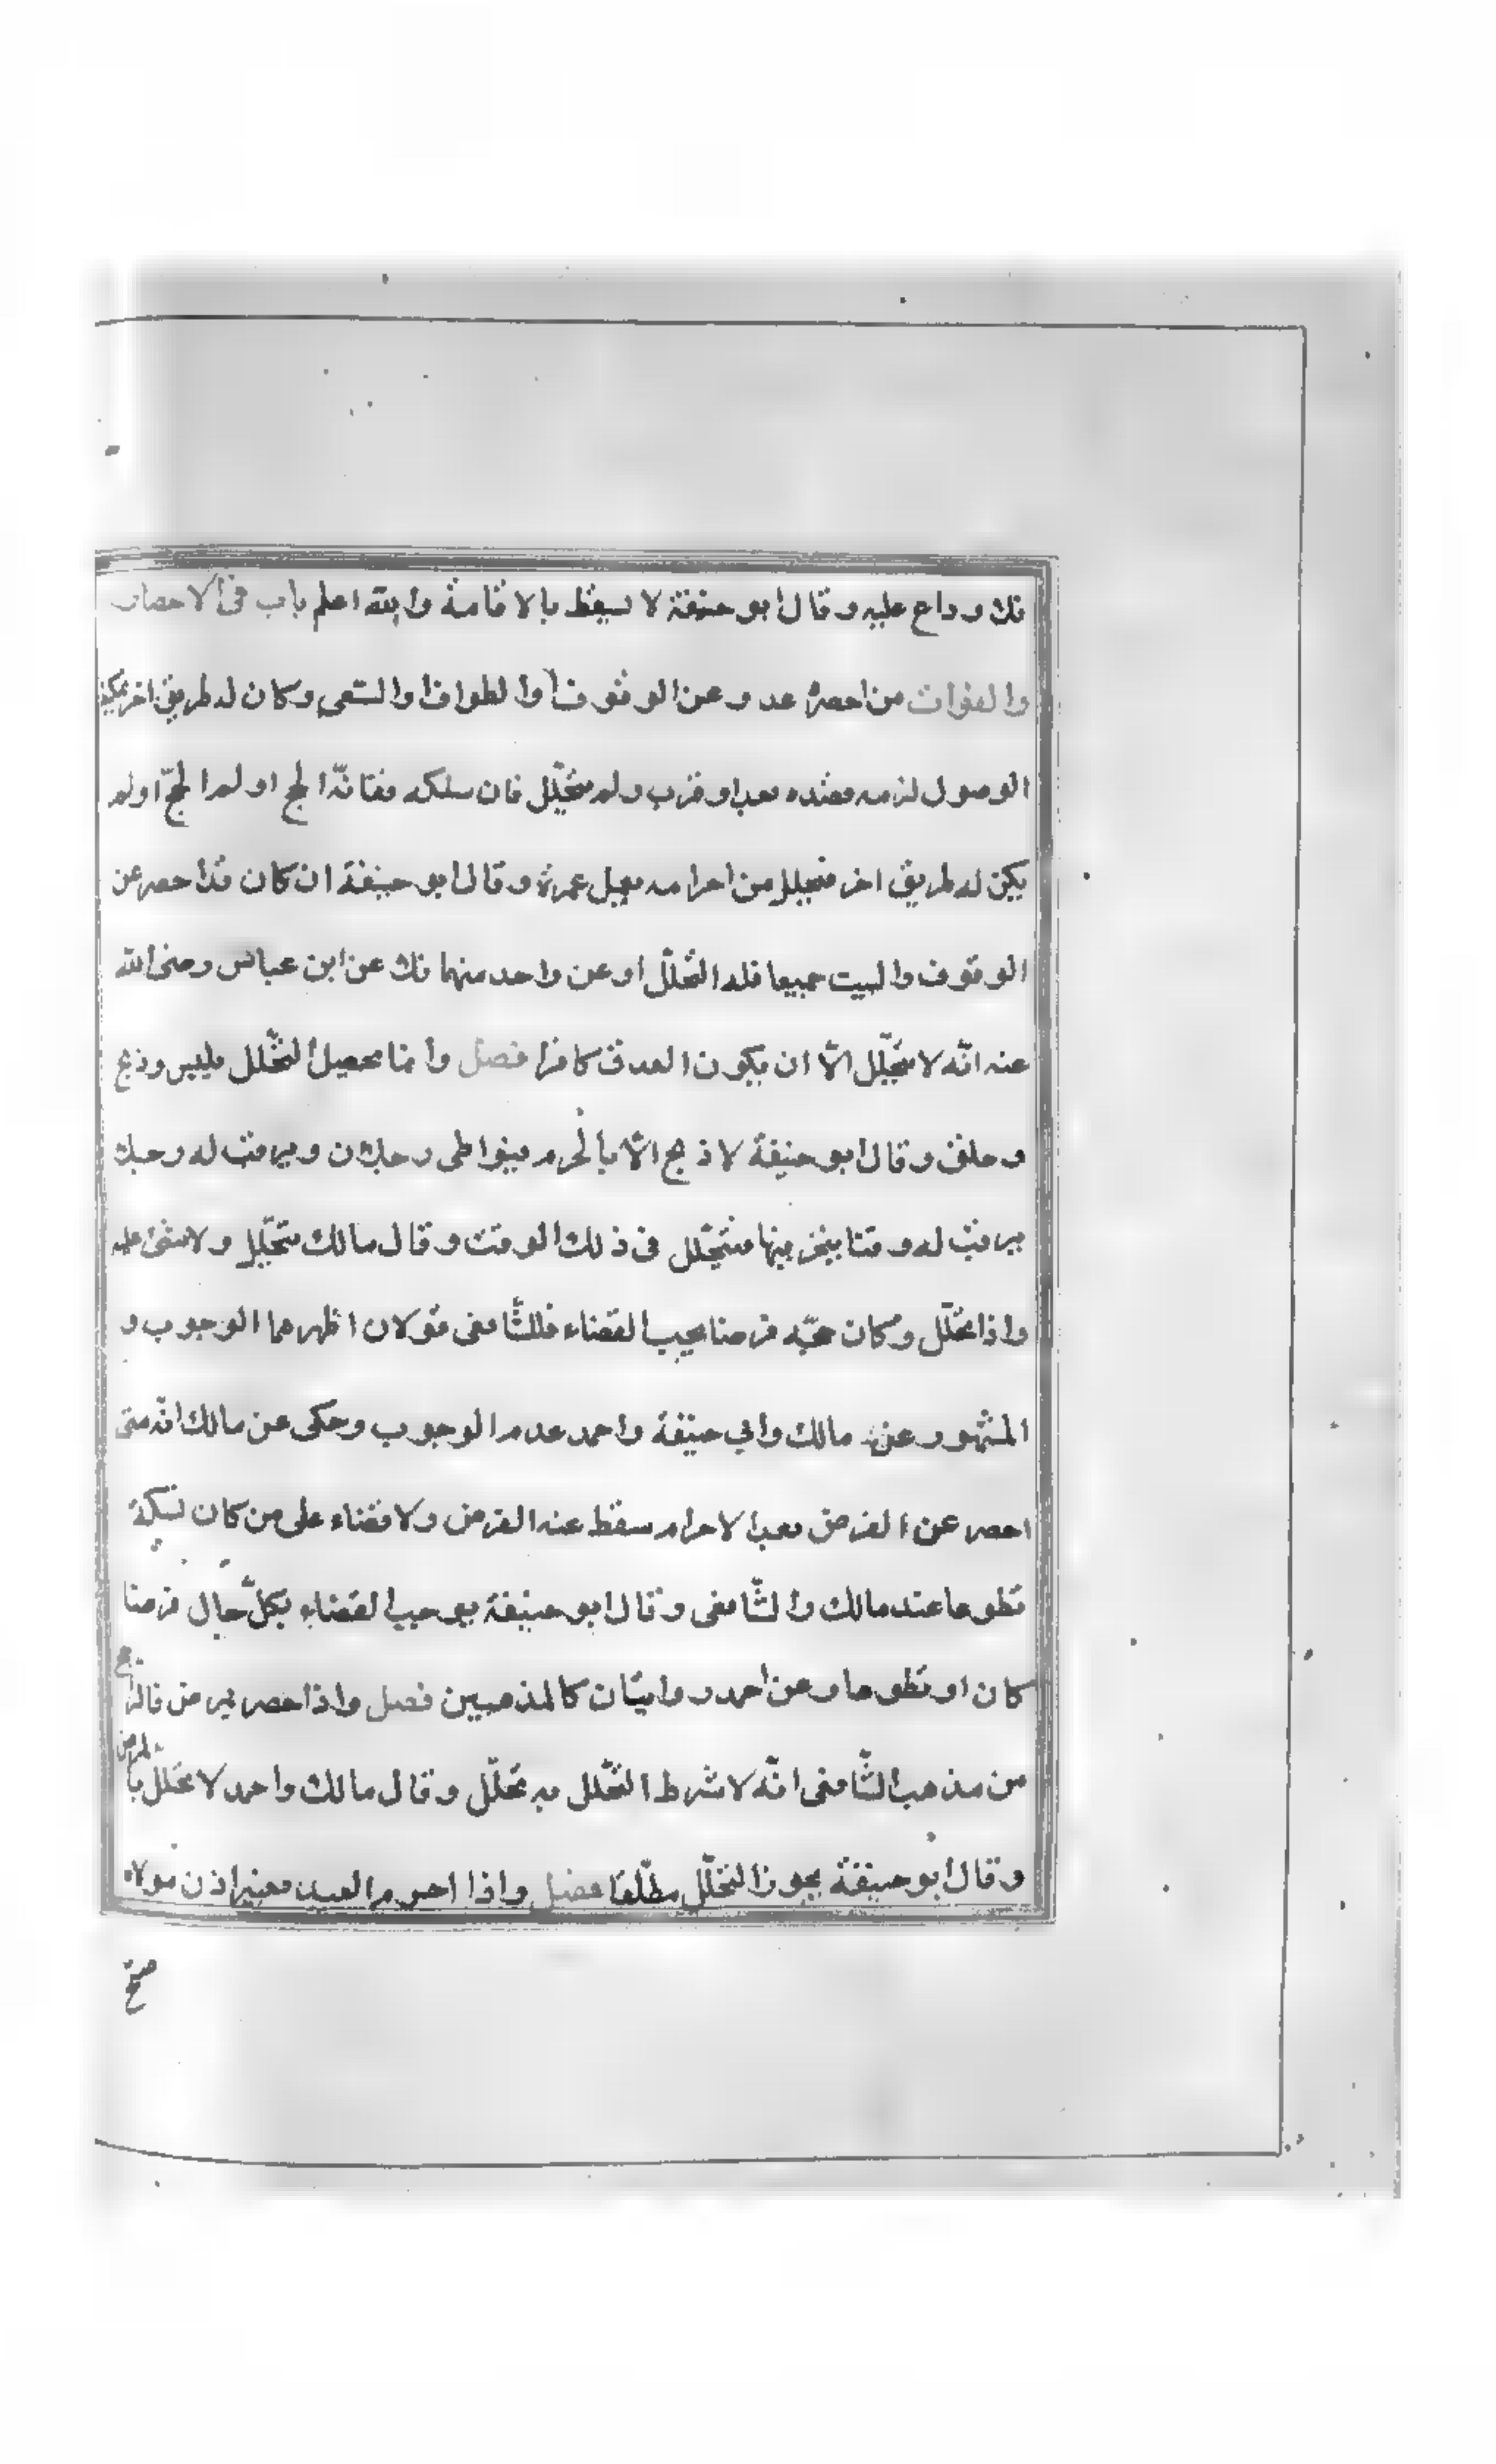 فلا وداع عليه وقال ابو حنيفة لا يسقط بالاقامة والله اعلم باب في الاحصار
والفوات من احصره عدو عن الوقوف او الطواف او السعي وكان له طريق اخر يمكنه
الوصول لزمه قصده بعد او قرب ولم يتحلل فان سلكه ففاته الحج او لم الحج او لم
يكن له طريق اخر فتحلل من احرامه بعمل عمرة وقال ابو حنيفة ان كان قد احصر عن
الوقوف والبيت جميعا فله التحلل او عن واحد منهما فلا عن ابن عباس رضى الله
عنه انّه لا يتحلّل الّا ان يكون العدو كافرا فصل وانما يحصل التحّلل بلبس وذبح
وحلق وقال ابو حنيفة لا ذبح الّا بالحرم فيواطى رجلان ويرقب له رجلا
يرقب له وقتا ينحر فيها فيتحّلل في ذلك الوقت وقال مالك يتحلّل ولا شئ عليه
واذا تحلّل وكان حجّه فرضا يجب القضاء فللشّافعى قولان اظهرهما الوجوب و
المشهور عن مالك وابي حنيفة واحمد عدم الوجوب وحكى عن مالك انّه متى
احصر عن الفرض بعد الاحرام سقط عنه الفرض ولا قضاء على من كان نسكه
تطوعا عند مالك والشّافعى وقال ابو حنيفة بوجيب القضاء بكلّ حال فرضا
كان او تطوعا وعن احمد روايتان كالمذهبين فصل واذا احصر بمرض فالرّاجح
من مذهب الشّافعى انّه لا شرط التّحلل به تحلّل وقال مالك واحمد لا تحلّل بالمرض
وقال ابو حنيفة يجوز التحلّل مطلّقا فصل واذا احرم العبد بغير اذن مولاه
صح